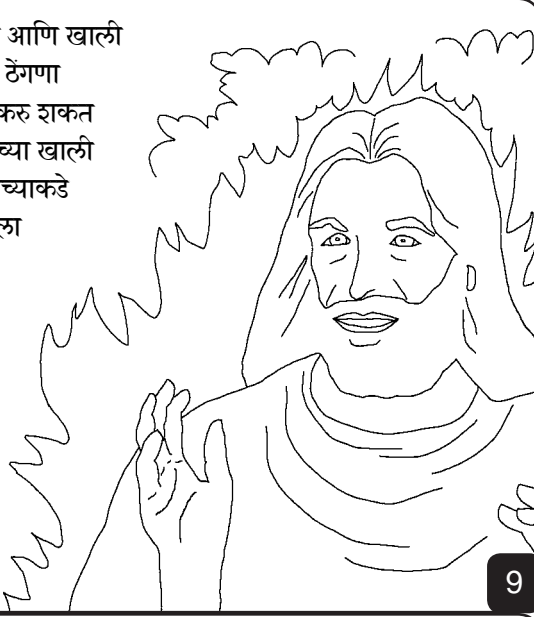 आणि खाली
ठेंगणा
करु शकत
च्या खाली
च्याकडे
ला
9